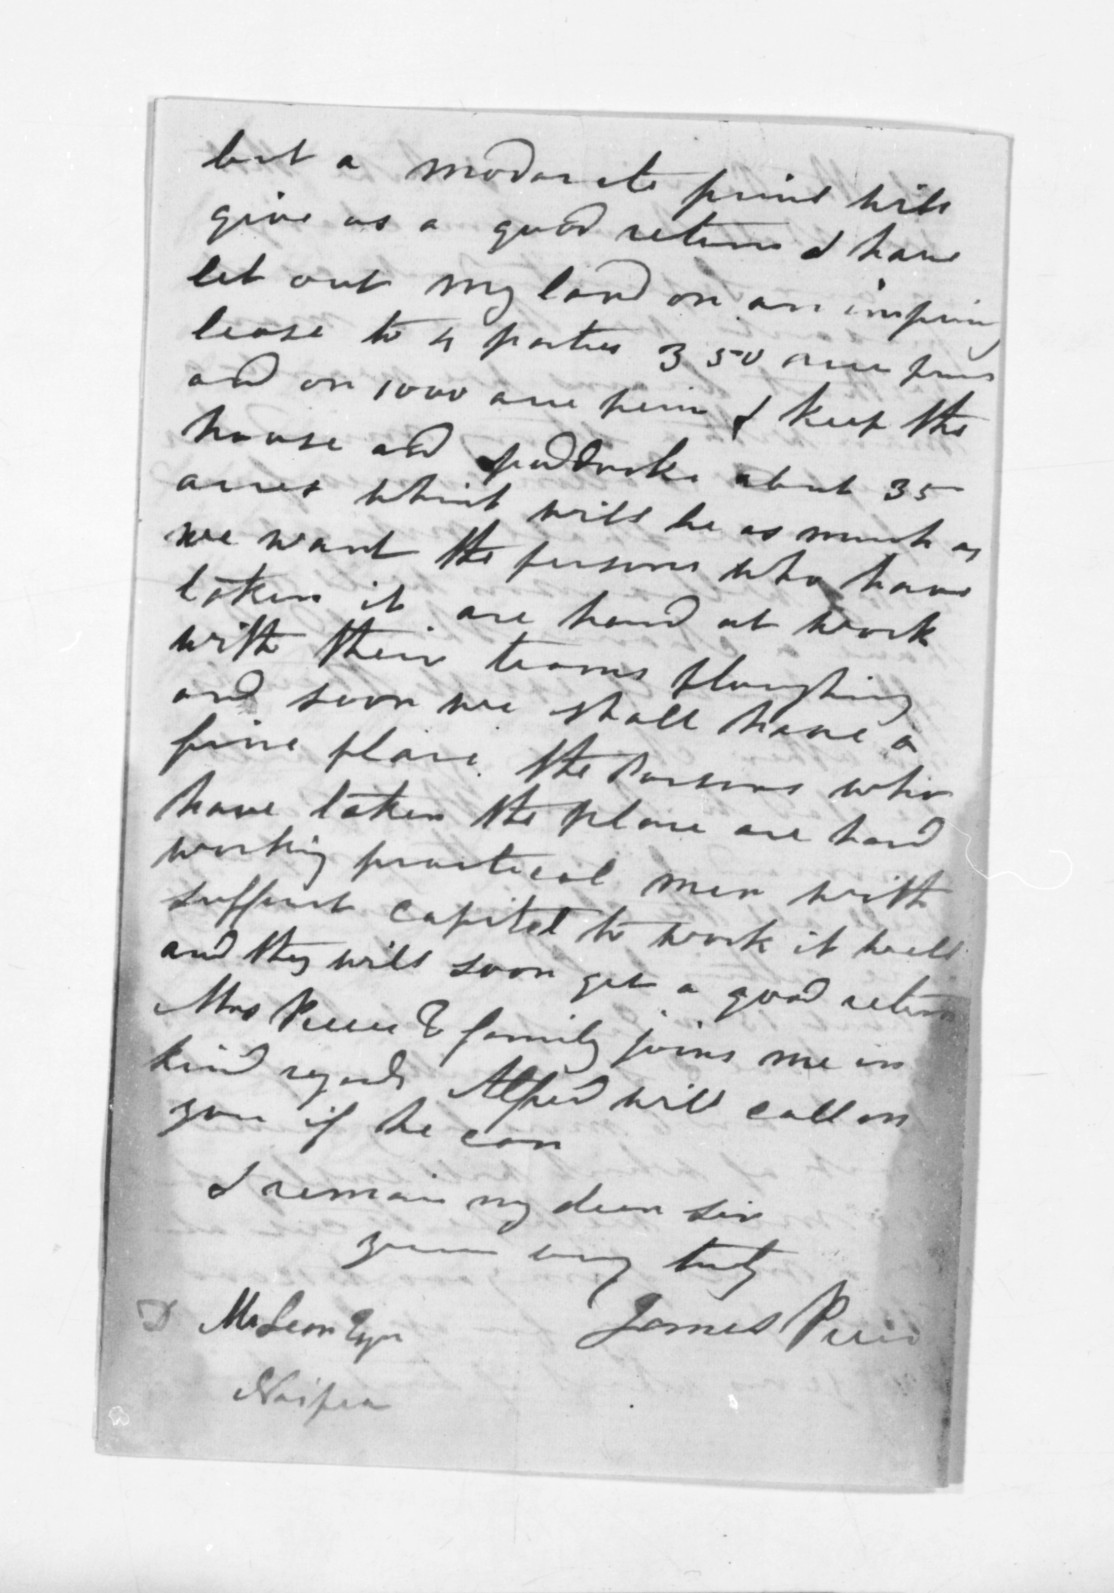 but a moderate price will
give us a good return I have
let out my land on an improving
lease to 4 parties 350 acre farms
and on 1000 acre farm I keep the
house and paddocks about 35
acres which will be as much as
we want the persons who have
taken it are hard at work
with their teams ploughing
and soon we shall have a
fine place. the Persons who
have taken the place are hard
working practical men with
suffient capital to work it well
and they will soon get a good return
Mrs Preece & family joins me in
kind regards Alfred will call on
you if he can
I remain my dear sir
yours very truly
D McLean Esqr James Preece
Napier